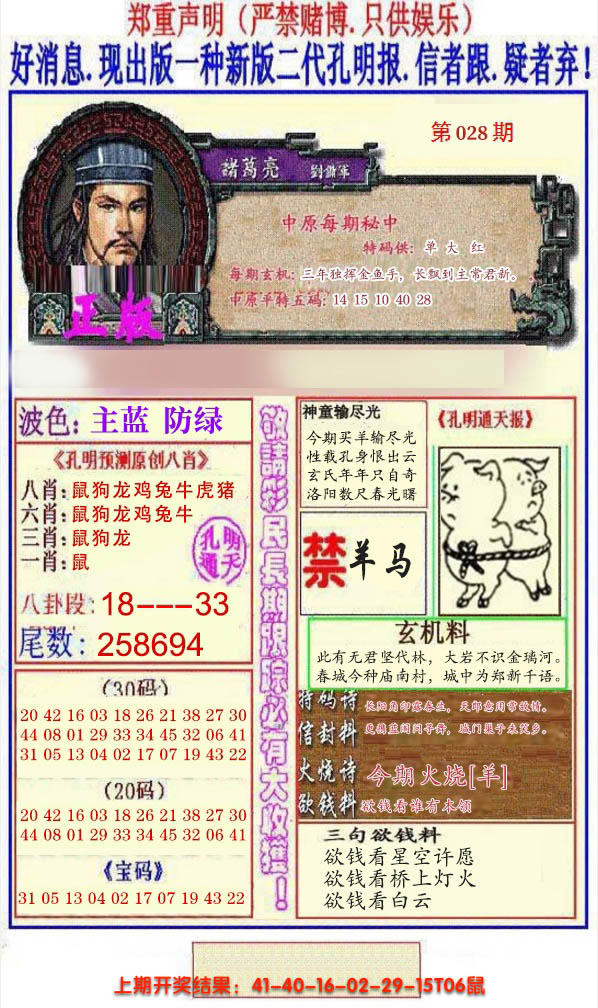 郑重声明（严禁赌博.只供娱乐）
好消息.现出版一种新版二代孔明报.信者跟.疑者弃！
第028期
諸葛亮
中原每期秘中
特码供：单 大 红
每期玄机：三年独挥金鱼手，长飘到主常君新。
中原平特五码：14 15 10 40 28
正版
波色：主蓝 防绿
《孔明预测原创八肖》
八肖：鼠狗龙鸡兔牛虎猪
六肖：鼠狗龙鸡兔牛
三肖：鼠狗龙
一肖：鼠
孔明
通天
八卦段：18---33
尾数：258694
（30码）
20 42 16 03 18 26 21 38 27 30
44 08 01 29 33 34 45 32 06 41
31 05 13 04 02 17 07 19 43 22
（20码）
20 42 16 03 18 26 21 38 27 30
44 08 01 29 33 34 45 32 06 41
《宝码》
31 05 13 04 02 17 07 19 43 22
敬請彩民長期跟踪必有大收獲！
神童输尽光
今期买羊输尽光
性载孔身恨出云
玄氏年年只自奇
洛阳数尺春光曙
《孔明通天报》
禁 羊马
玄机料
此有无君坚代林，大岩不识金璃河。
春城今种庙南村，城中为郑新千语。
特码诗
信封料
火烧诗 今期火烧[羊]
欲钱料 欲钱看谁有本领
三句欲钱料
欲钱看星空许愿
欲钱看桥上灯火
欲钱看白云
上期开奖结果：41-40-16-02-29-15T06鼠